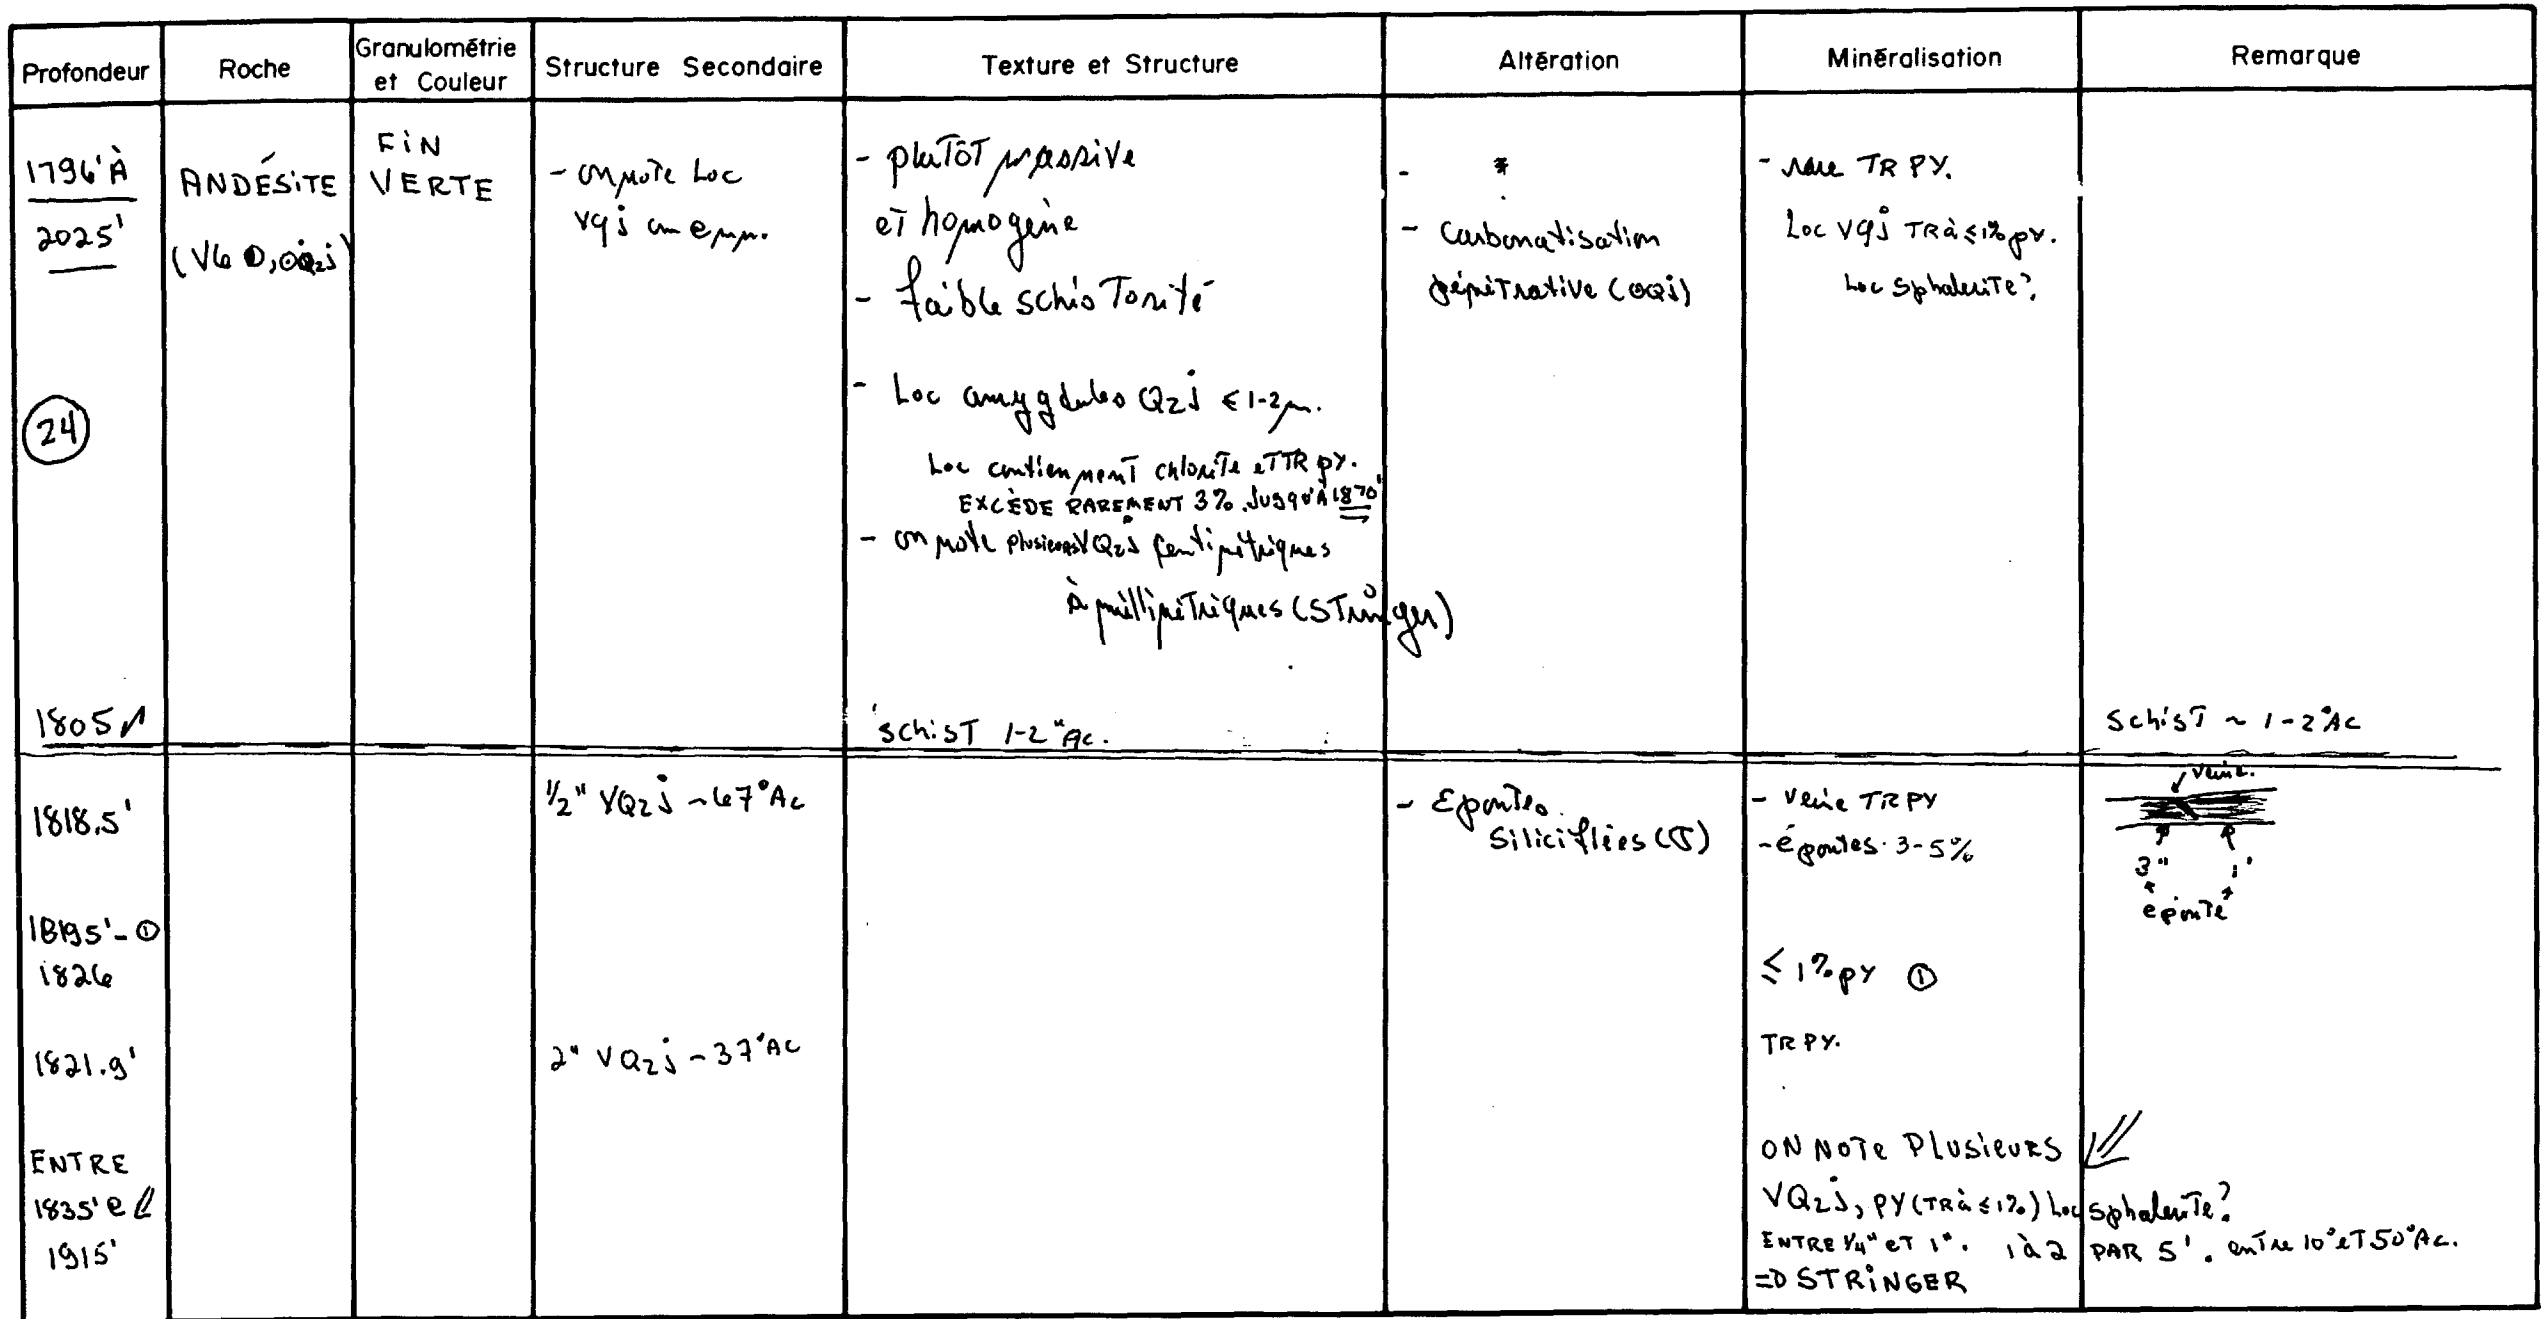 Profondeur
Roche
Granulométrie
et Couleur
Structure Secondaire
Texture et Structure
Altération
Minéralisation
Remarque
1796' À
2025'
ANDÉSITE
FIN
VERTE
- on note Loc
vqj
- plutôt massive
et homogène
- faible schistosité
- Loc amygdules Qzj ≤ 1-2
Loc contiennent chlorite et TR py.
EXCÈDE RAREMENT 3%. JUSQU'À 1870'
- on note plusieurs VQzj centimétriques
à millimétriques (Stringer)
- *
- Carbonatisation
pénétrative
- rare TR PY.
Loc vqj TR à ≤ 1% py.
Loc sphalerite?
24
1805
schist 1-2° Ac.
schist ~ 1-2° Ac
1818.5'
1/2" VQzj ~ 67° Ac
- Epontes
Silicifiées
- veine TR PY
- épontes 3-5%
veine.
3" 1'
eponte
1819.5' - ①
1826
≤ 1% py ①
1821.9'
2" VQzj ~ 37° Ac
TR PY.
ENTRE
1835' et
1915'
ON NOTE PLUSIEURS
VQzj, PY (TR à ≤ 1%) Loc sphalerite?
ENTRE 1/4" ET 1". 1 à 2 PAR 5'. entre 10° et 50° Ac.
=> STRINGER